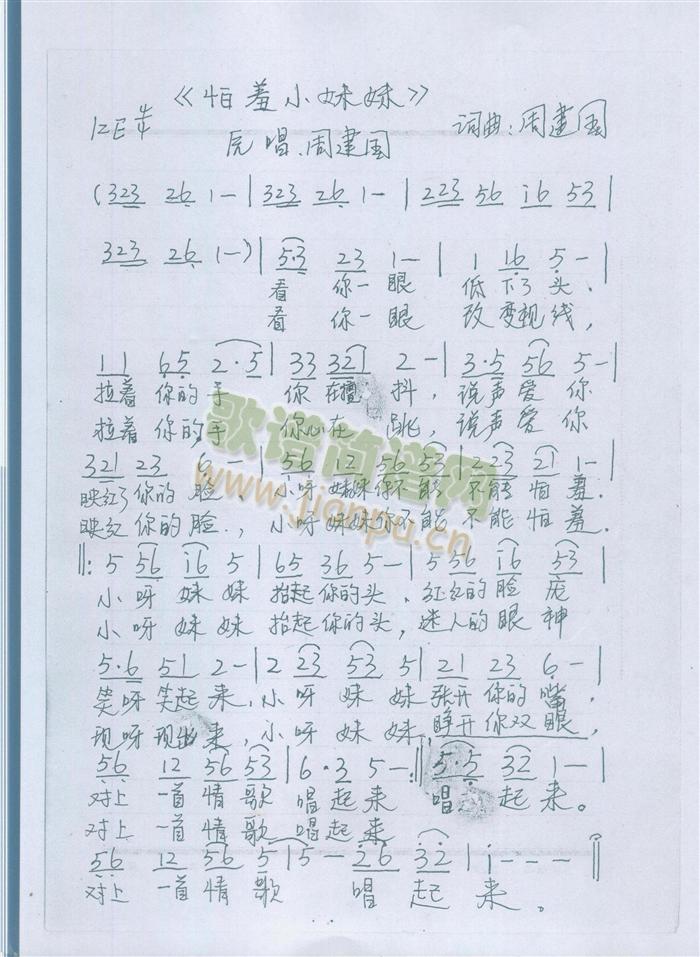 《怕羞小妹妹》
词曲:周建国
原唱.周建国
(323 26 1-|323 26 1-|223 56 i6 53|
323 26 1-)|5·3 23 1-|1 16 5-|
看 你一眼 低下了头、
看 你一眼 改变视线,
11 65 2·5|33 321 2-|3·5 56 5-|
拉着你的手 你在 抖,说声爱你
拉着你的手 你心在 跳,说声爱你
321 23 6-|56 12 56 53|223 21 1-|
映红了你的脸、小呀妹妹你不能不能怕羞.
映红你的脸.,小呀妹妹你不能不能怕羞.
‖:5 56 i6 5|65 36 5-|5 56 i6 53|
小呀妹妹抬起你的头、红红的脸庞
小呀妹妹抬起你的头,迷人的眼神
5·6 51 2-|2 23 53 5|21 23 6-|
笑呀笑起来,小呀妹妹张开你的嘴,
现呀现出来,小呀妹妹睁开你双眼,
56 12 56 53|6·3 5-:‖5·5 32 1-|
对上一首情歌唱起来 唱起来。
对上一首情歌唱起来
56 12 56 5|5-26 32|i---‖
对上一首情歌 唱起来。
歌谱简谱网
www.jianpu.cn